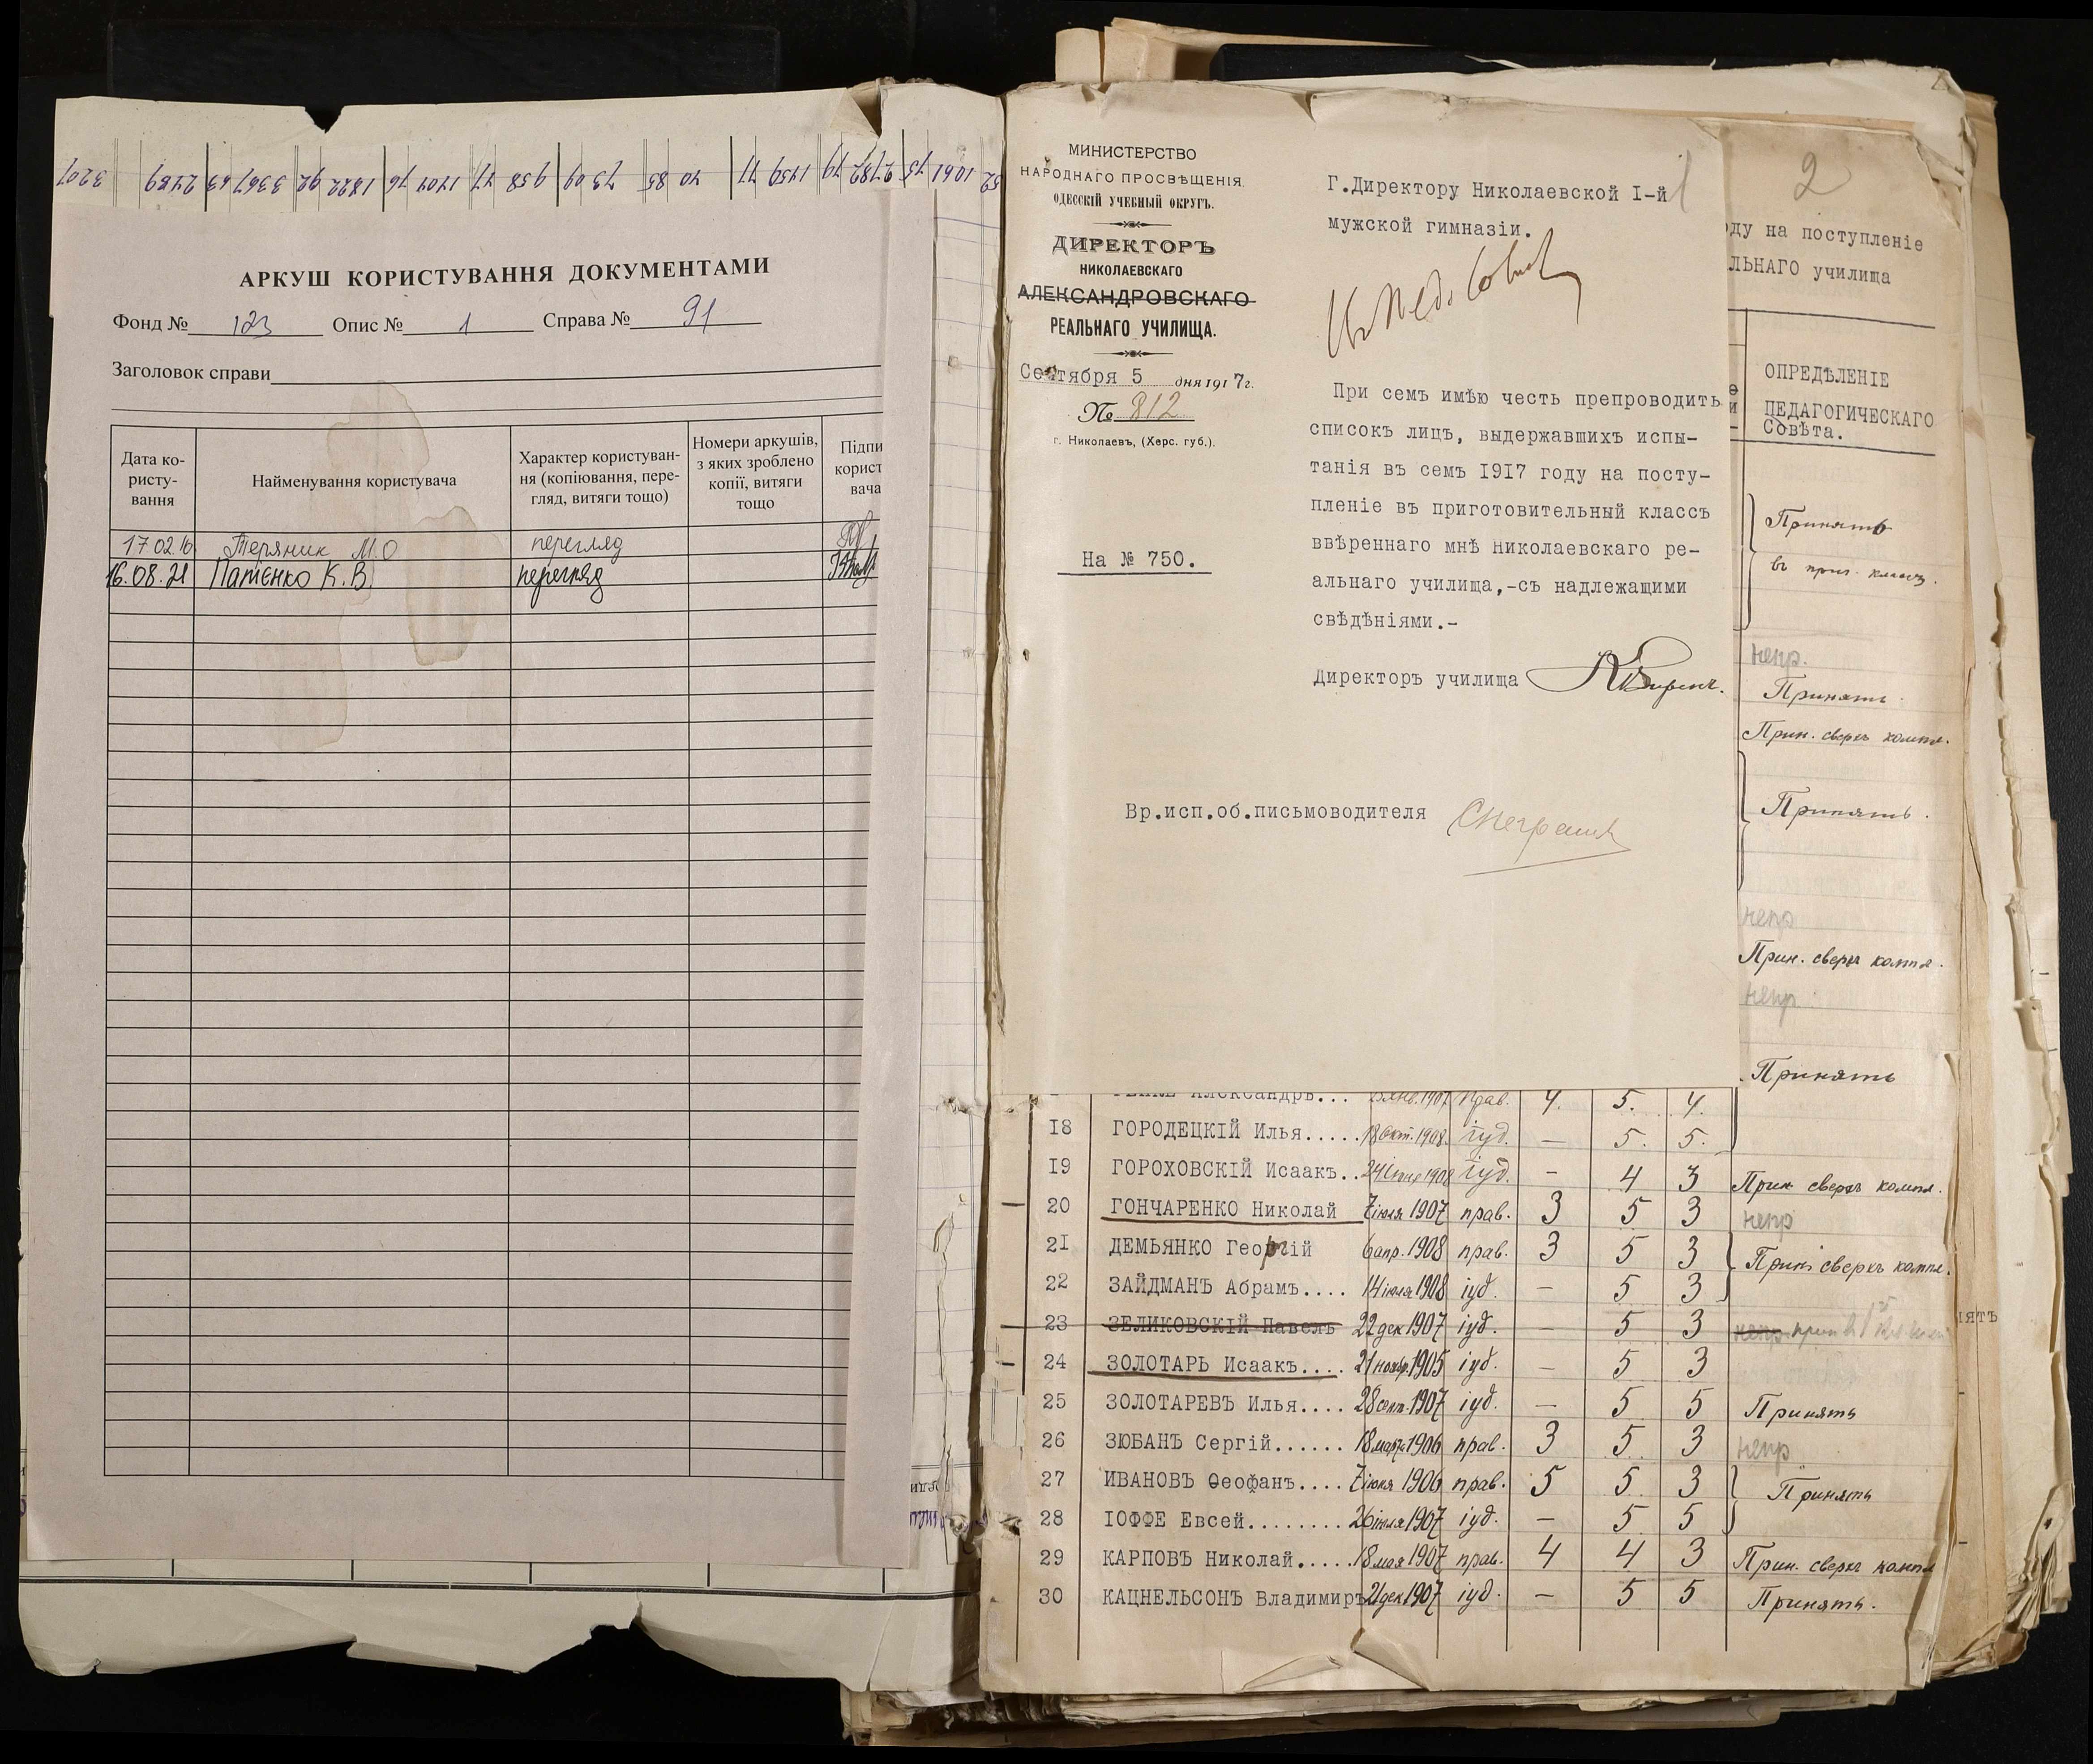 3207 2489 63 3367 92 1822 76 1404 77 958 69 73 85 40 77 1459 79 2782 75 1061 52
АРКУШ КОРИСТУВАННЯ ДОКУМЕНТАМИ
Фонд № 123 Опис № 1 Справа № 91
Заголовок справи
Дата ко-
ристу-
вання
Найменування користувача
Характер користуван-
ня (копіювання, пере-
гляд, витяги тощо)
Номери аркушів,
з яких зроблено
копії, витяги
тощо
Підпи
корист
вача
17.02.16 Теряник М.О перегляд
16.08.21 Патієнко К.В. перегляд
МИНИСТЕРСТВО
НАРОДНАГО ПРОСВѢЩЕНІЯ.
ОДЕССКІЙ УЧЕБНЫЙ ОКРУГЪ.
ДИРЕКТОРЪ
НИКОЛАЕВСКАГО
АЛЕКСАНДРОВСКАГО
РЕАЛЬНАГО УЧИЛИЩА.
Сентября 5 дня 1917 г.
№ 812
г. Николаевъ, (Херс. губ.).
На № 750.
1
Г.Директору Николаевской I-й
мужской гимназіи.
При семъ имѣю честь препроводить
списокъ лицъ, выдержавшихъ испы-
танія въ семъ 1917 году на посту-
пленіе въ приготовительный классъ
ввѣреннаго мнѣ Николаевскаго ре-
альнаго училища,-съ надлежащими
свѣдѣніями.-
Директоръ училища
Вр.исп.об.письмоводителя
2
оду на поступленіе
ЛЬНАГО училища
ОПРЕДѢЛЕНІЕ
ПЕДАГОГИЧЕСКАГО
Совѣта.
Принять
въ приг. классъ.
непр.
Принять
Прин. сверхъ компл.
Принять.
непр
Прин. сверхъ компл.
непр
Принять
Александръ... 1907 прав. 4. 5. 4.
18 ГОРОДЕЦКІЙ Илья..... 18 окт. 1908. іуд. — 5. 5.
19 ГОРОХОВСКІЙ Исаакъ.. 24 іюня 1908 іуд. — 4 3 Прин сверхъ компл.
20 ГОНЧАРЕНКО Николай 7 іюля 1907 прав. 3 5 3 непр
21 ДЕМЬЯНКО Георгій 6 апр. 1908 прав. 3 5 3 Прин сверхъ компл.
22 ЗАЙДМАНЪ Абрамъ.... 14 іюля 1908 іуд. — 5 3
23 ЗЕЛИКОВСКІЙ Павелъ 22 дек 1907 іуд. — 5 3 непр
24 ЗОЛОТАРЬ Исаакъ.... 21 ноябр. 1905 іуд. — 5 3
25 ЗОЛОТАРЕВЪ Илья.... 28 сент. 1907 іуд. — 5 5 Принять
26 ЗЮБАНЪ Сергій...... 18 марта 1906 прав. 3 5 3 непр
27 ИВАНОВЪ Ѳеофанъ.... 7 іюня 1906 прав. 5 5 3 Принять
28 ІОФФЕ Евсей........ 26 іюля 1907 іуд. — 5 5
29 КАРПОВЪ Николай..... 18 мая 1907 прав. 4 4 3 Прин. сверхъ компл
30 КАЦНЕЛЬСОНЪ Владиміръ 21 дек 1907 іуд. — 5 5 Принять.
ЯТЬ